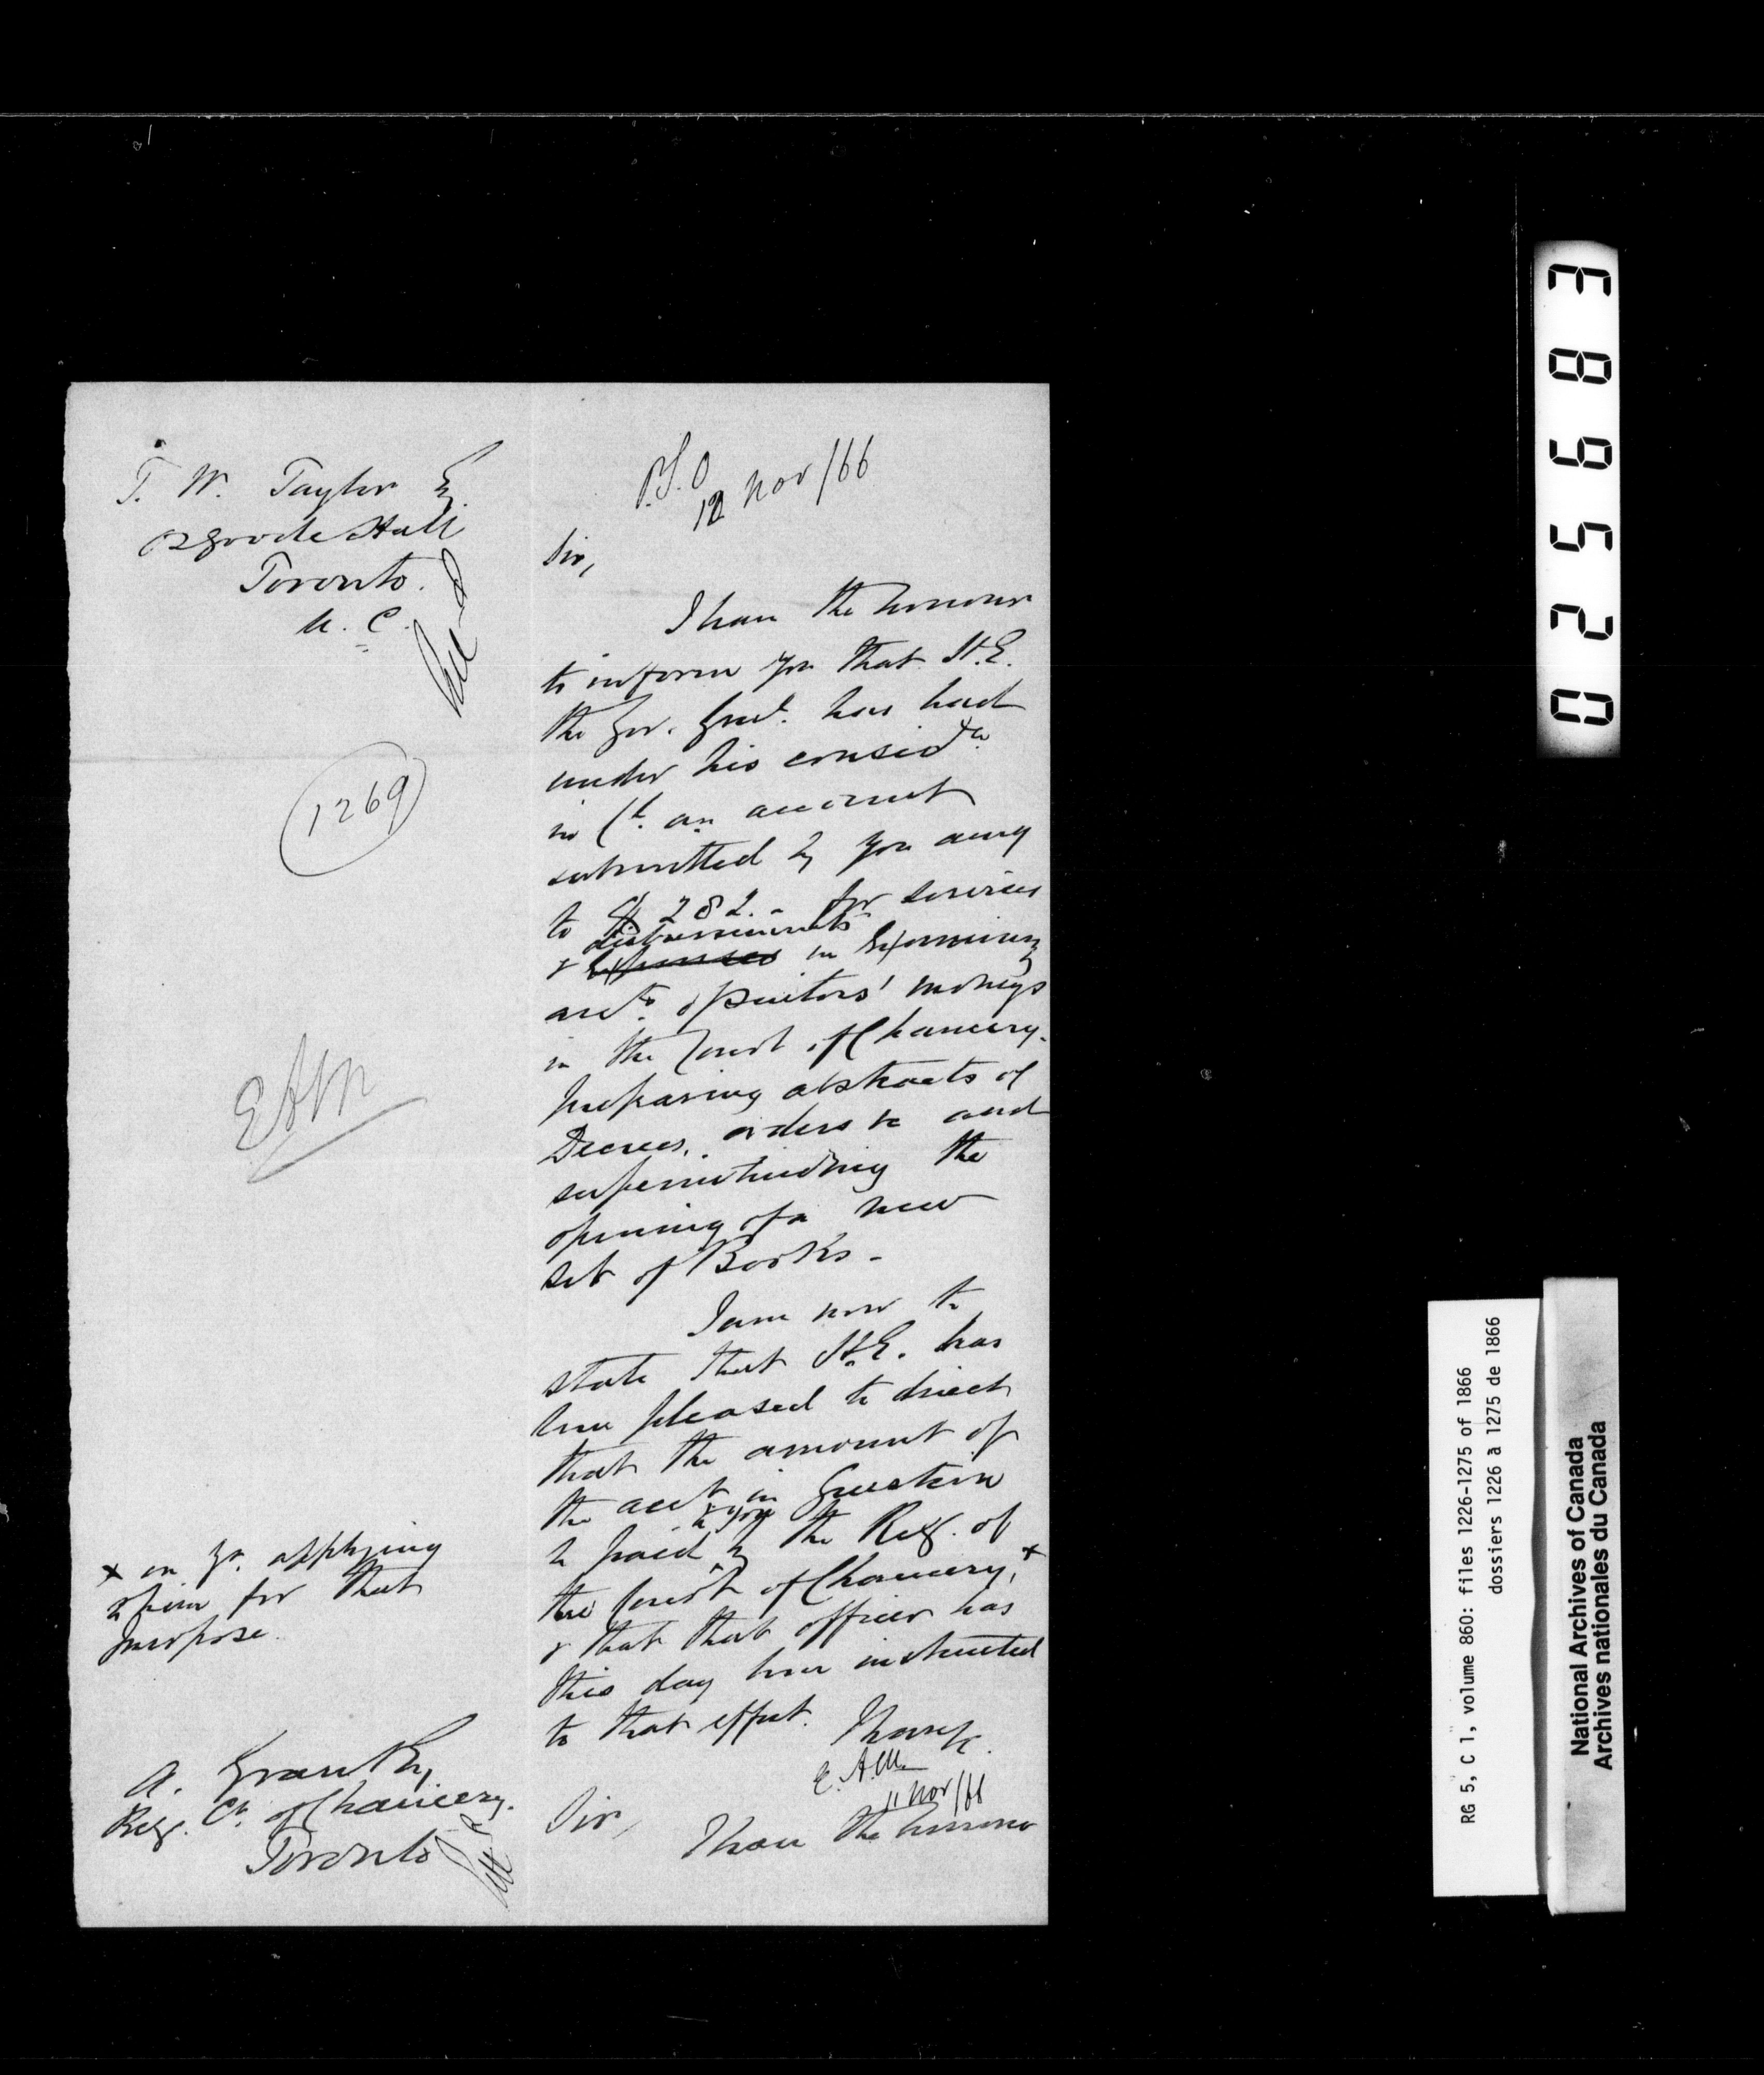 T. W. Taylor Eq.
Osgoode Hall
Toronto.
U. C.
1269
EAM
x on yr. applying
to him for that
purpose.
A. Grant Er,
Reg. Ct. of Chancery.
Toronto
P.S.O
12 Nov/66
Sir,
I have the honour
to inform you that H.E.
the Gov. Genl. has had
under his considn
in Cl. an account
submitted by you amg
to $282.- for services
disbursements
& Expenses in Examining
accts. of suitors' moneys
in the Court of Chancery.
preparing abstracts of
Decrees, orders &c and
superintending the
opening of a new
set of Books -
I am now to
state that H.E. has
been pleased to direct
that the amount of
the acct in Question
to you
be paid by the Reg. of
the Court of Chancery, x
& that that officer has
this day been instructed
to that effect.
I have &c.
E.A.M.
11 Nov/66
Sir,
I have the honour
025683
RG 5, C 1, volume 860: files 1226-1275 of 1866
dossiers 1226 à 1275 de 1866
National Archives of Canada
Archives nationales du Canada